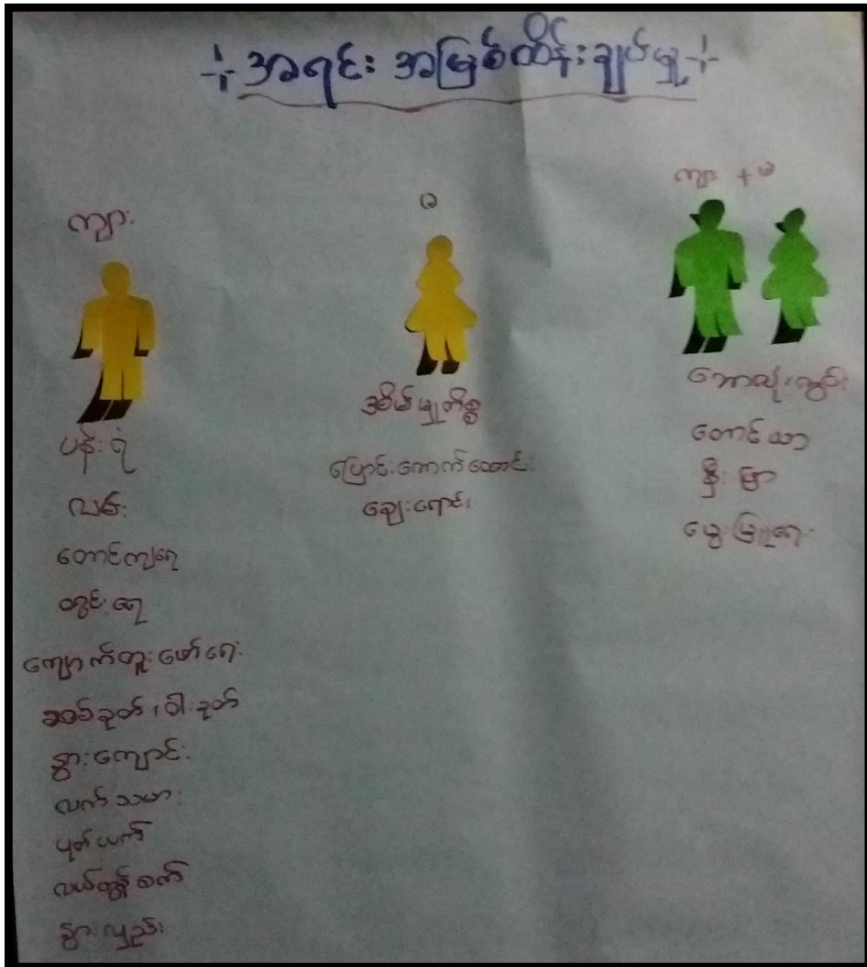 အရင်း အမြစ်ထိန်းချုပ်မှု
ကျား
ပန်းရံ
လမ်း
တောင်ကျရေ
တွင်းရေ
ကျောက်တူးဖော်ရေး
သစ်ခုတ်၊ ဝါးခုတ်
နွားကျောင်း
လက်သမား
ပုတ်ယက်
လယ်ထွန်စက်
နွားလှည်း
မ
အိမ်မှုကိစ္စ
ပြောင်းကောက်ထောင်း
ချေးရောင်း
ကျား + မ
တောင်ယာ
နှီးဖြာ
မွေးမြူရေး